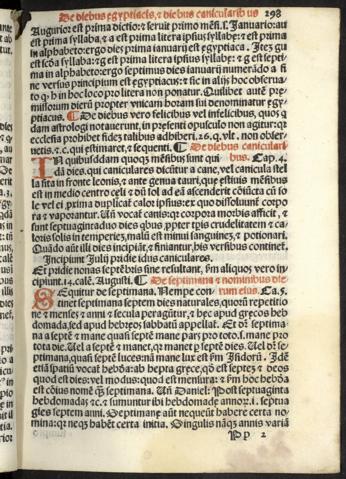 De diebus egyptiacis, ⁊ diebus canicularibus 298
Augurior est prima dictio: ⁊ seruit primo mēsi .s. Januario: au
est prima syllaba, ⁊ a est prima litera ipsius syllabe: ⁊ est prima
in alphabeto: ergo dies prima ianuarij est egyptiaca. Itez gu
est scđa syllaba: ⁊ g est prima litera ipsius syllabe: ⁊ g est septi-
ma in alphabeto: ergo septimus dies ianuarij numerādo a fi
ne versus principium est egyptiacus: ⁊ sic in alijs hoc obserua-
to ꝙ h in hoc loco pro litera non ponatur. Quilibet autē pre-
missorum dierū propter vnicam horam sui denominatur egy-
ptiacus. ¶ De diebus vero felicibus vel infelicibus, quos q̄
dam astrologi notauerunt, in presenti opusculo non agitur: qz
ecclesia prohibet fidez talibus adhiberi. 26. q. vlt. non obser-
uetis. ⁊ c. qui estimaret, ⁊ sequenti. ¶ De diebus caniculari
IN quibusdam quoqz mēsibus sunt qui bus. Cap. 4.
dā dies, qui caniculares dicūtur a cane, vel canicula stel
la sita in fronte leonis, ⁊ ante genua tauri, que estiuis mēsibus
est in medio centro celi ⁊ dū sol ad eā ascenderit cōiūcta cū so
le vel ei .primā duplicat calor ipsius: ex quo dissoluunt corpo
ra ⁊ vaporantur. Uñ vocat canis: qz corpora morbis afficit, ⁊
sunt septuaginta duo dies qbus ꝓpter ipsius crudelitatem ⁊ ca-
loris solis in temperiez, malū est minui sanguinez, ⁊ potionari.
Quādo aūt illi dies incipiāt, ⁊ finiantur, his versibus continet.
Incipiunt Julij pridie idus caniculares.
Et pridie nonas septēbris sine resultant, ꝟm aliquos vero in-
cipiunt. 14. calē. Augusti. ¶ De septimana ⁊ nominibus die
SEquitur de septimana. Nempe con- rum eius. Ca. 5.
tinet septimana septem dies naturales, quorū repetitio
ne ⁊ menses ⁊ anni ⁊ secula peragūtur, ⁊ hec apud grecos heb
domada, sed apud hebreos sabbatū appellat. Et dr̄ septima-
na a septē ⁊ mane quasi septē mane pars pro toto .s. mane pro
tota die. Uel a septē ⁊ manet, qz manet p septē dies. Uel dr̄ se-
ptimana, quasi septē luces: nā mane lux est ꝟm Isidorū. Idē
etiā spatiū vocat hebdoa: ab hepta grece, qđ est septez ⁊ deos
quod est dies: vel modus: quod est mensura: ⁊ ꝟm hoc hebdōa
est cōius nomē ꝙ̄ septimana. Uñ Daniel: Post septuaginta
hebdomadas ⁊c. ⁊ sumuntur ibi hebdomade annoꝝ .i. septua-
gies septem anni. Septimane aūt nequeūt habere certa no-
mina: qz neqz habēt certa initia. Singulis nāqz annis variā
Pp 2